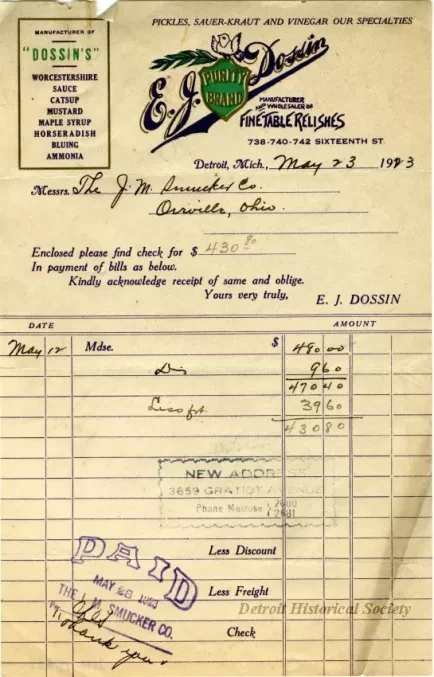 PICKLES, SAUER-KRAUT AND VINEGAR OUR SPECIALTIES
MANUFACTURER OF
"DOSSIN'S"
WORCESTERSHIRE
SAUCE
CATSUP
MUSTARD
MAPLE SYRUP
HORSERADISH
BLUING
AMMONIA
E. J. Dossin
PURITY
BRAND
MANUFACTURER
AND WHOLESALER OF
FINE TABLE RELISHES
738-740-742 SIXTEENTH ST.
Detroit, Mich., May 23 1923
Messrs. The J. M. Smucker Co.
Orrville, Ohio.
Enclosed please find check for $ 430 80
In payment of bills as below.
Kindly acknowledge receipt of same and oblige.
Yours very truly, E. J. DOSSIN
DATE AMOUNT
May 12 Mdse. $ 480 00
Dis 9 60
470 40
Less frt. 39 60
430 80
NEW ADDRESS
3659 GRATIOT AVENUE
Phone Melrose
Less Discount
PAID
MAY 26 1923
THE J. M. SMUCKER CO.
Less Freight
Detroit Historical Society
Check
Thank you